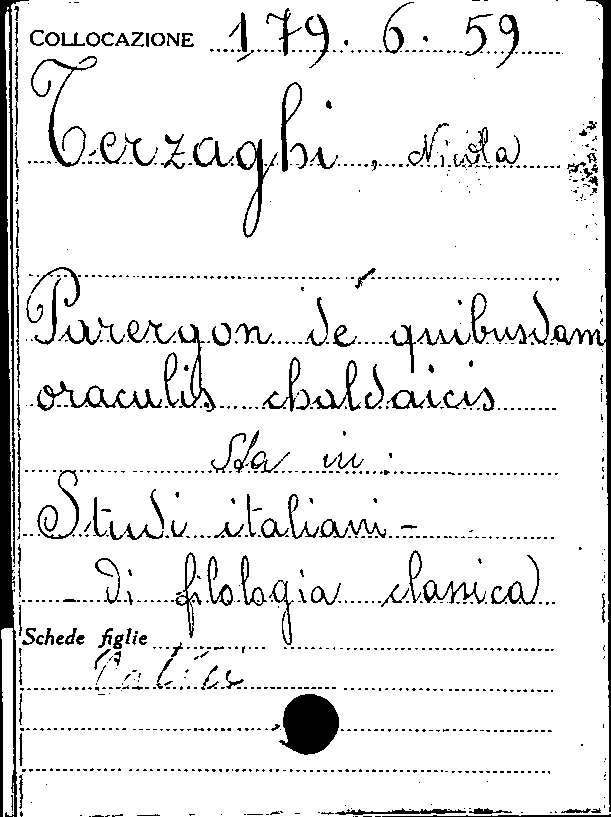 COLLOCAZIONE 179.6.59
Terzaghi, Nicola
Parergon de quibusdam
oraculis chaldaicis
Sta in:
Studi italiani -
- di filologia classica
Schede figlie